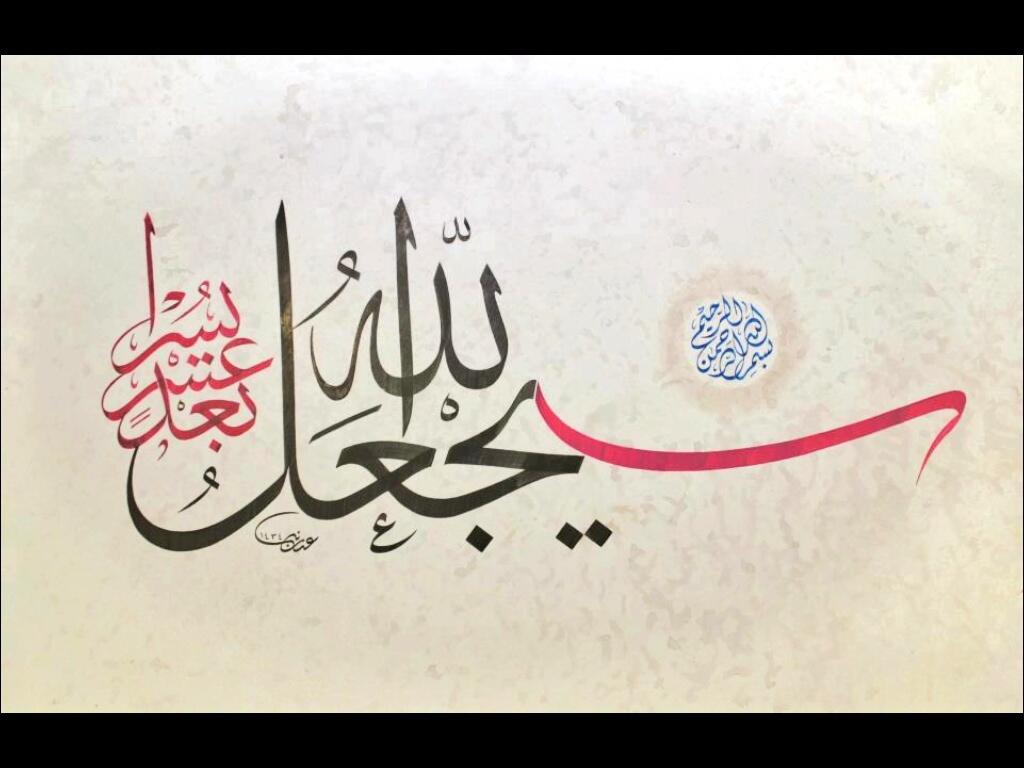 بسم الله الرحمن الرحيم
سيجعل الله بعد عسر يسرا
١٤٣٤